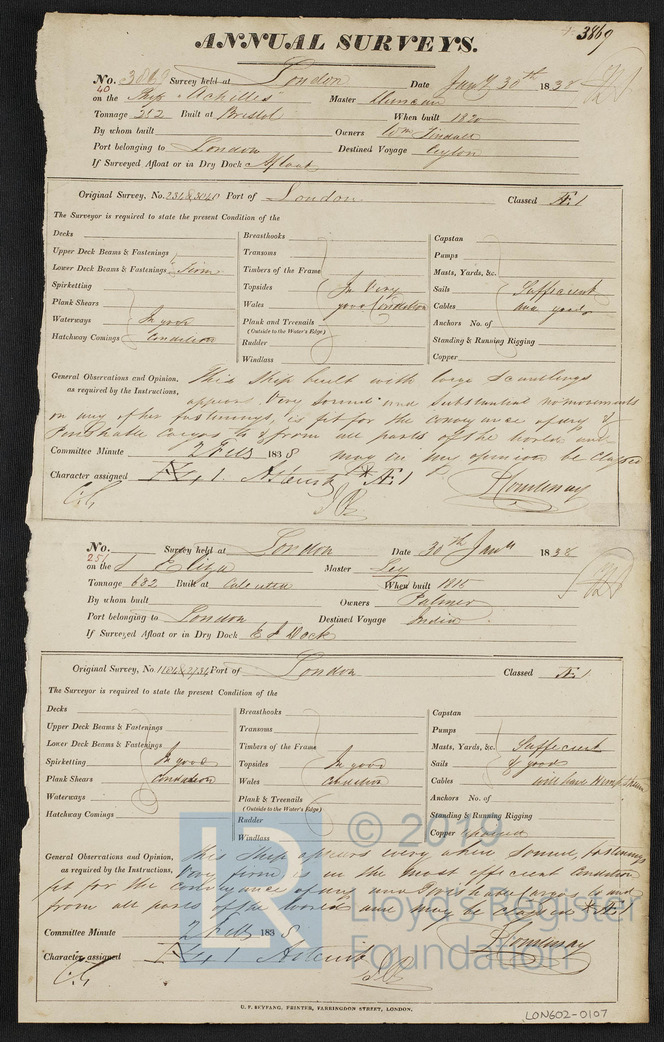 3869
ANNUAL SURVEYS.
No. 3869 Survey held at London Date Jany 30th 1838
40
on the Ship Achilles Master Duncan
Tonnage 252 Built at Bristol When built 1820
By whom built Owners Wm Tindall
Port belonging to London Destined Voyage Ceylon
If Surveyed Afloat or in Dry Dock Afloat
Original Survey, No. Port of London Classed Æ1
The Surveyor is required to state the present Condition of the
Decks
Upper Deck Beams & Fastenings
Lower Deck Beams & Fastenings Firm
Spirketting
Plank Shears
Waterways In good
Hatchway Comings Condition
Breasthooks
Transoms
Timbers of the Frame
Topsides In Very
Wales good Condition
Plank and Treenails
(Outside to the Water's Edge)
Rudder
Windlass
Capstan
Pumps
Masts, Yards, &c.
Sails Sufficient
Cables and good
Anchors No. of
Standing & Running Rigging
Copper
General Observations and Opinion, This Ship built with large Scantlings
as required by the Instructions, appears Very Sound and Substantial no movements
on any of her fastenings, is fit for the conveyance of dry &
Perishable Cargos to & from all parts of the world and
Committee Minute 2 Feby 1838 may in my opinion be Classed
Character assigned Æ1
No. Survey held at London Date 30th Jany 1838
251
on the S Eliza Master Ley
Tonnage 682 Built at Calcutta When built 1815
By whom built Owners Palmer
Port belonging to London Destined Voyage India
If Surveyed Afloat or in Dry Dock E I Dock
Original Survey, No Port of London Classed Æ1
The Surveyor is required to state the present Condition of the
Decks
Upper Deck Beams & Fastenings
Lower Deck Beams & Fastenings
Spirketting In good
Plank Shears Condition
Waterways
Hatchway Comings
Breasthooks
Transoms
Timbers of the Frame
Topsides In good
Wales Condition
Plank & Treenails
(Outside to the Water's Edge)
Rudder
Windlass
Capstan
Pumps
Masts, Yards, &c. Sufficient
Sails & good
Cables will have
Anchors No. of
Standing & Running Rigging
Copper
General Observations and Opinion, This Ship appears every where Sound, fastenings
as required by the Instructions, Very firm is in the most efficient Condition
fit for the conveyance of dry and Perishable Cargos to and
from all parts of the World and may be classed Æ1
Committee Minute 2 Feby 1838
Character assigned
© 2019
Lloyd's Register
Foundation
LR
U. F. BEYFANG, PRINTER, FARRINGDON STREET, LONDON.
LON602-0107